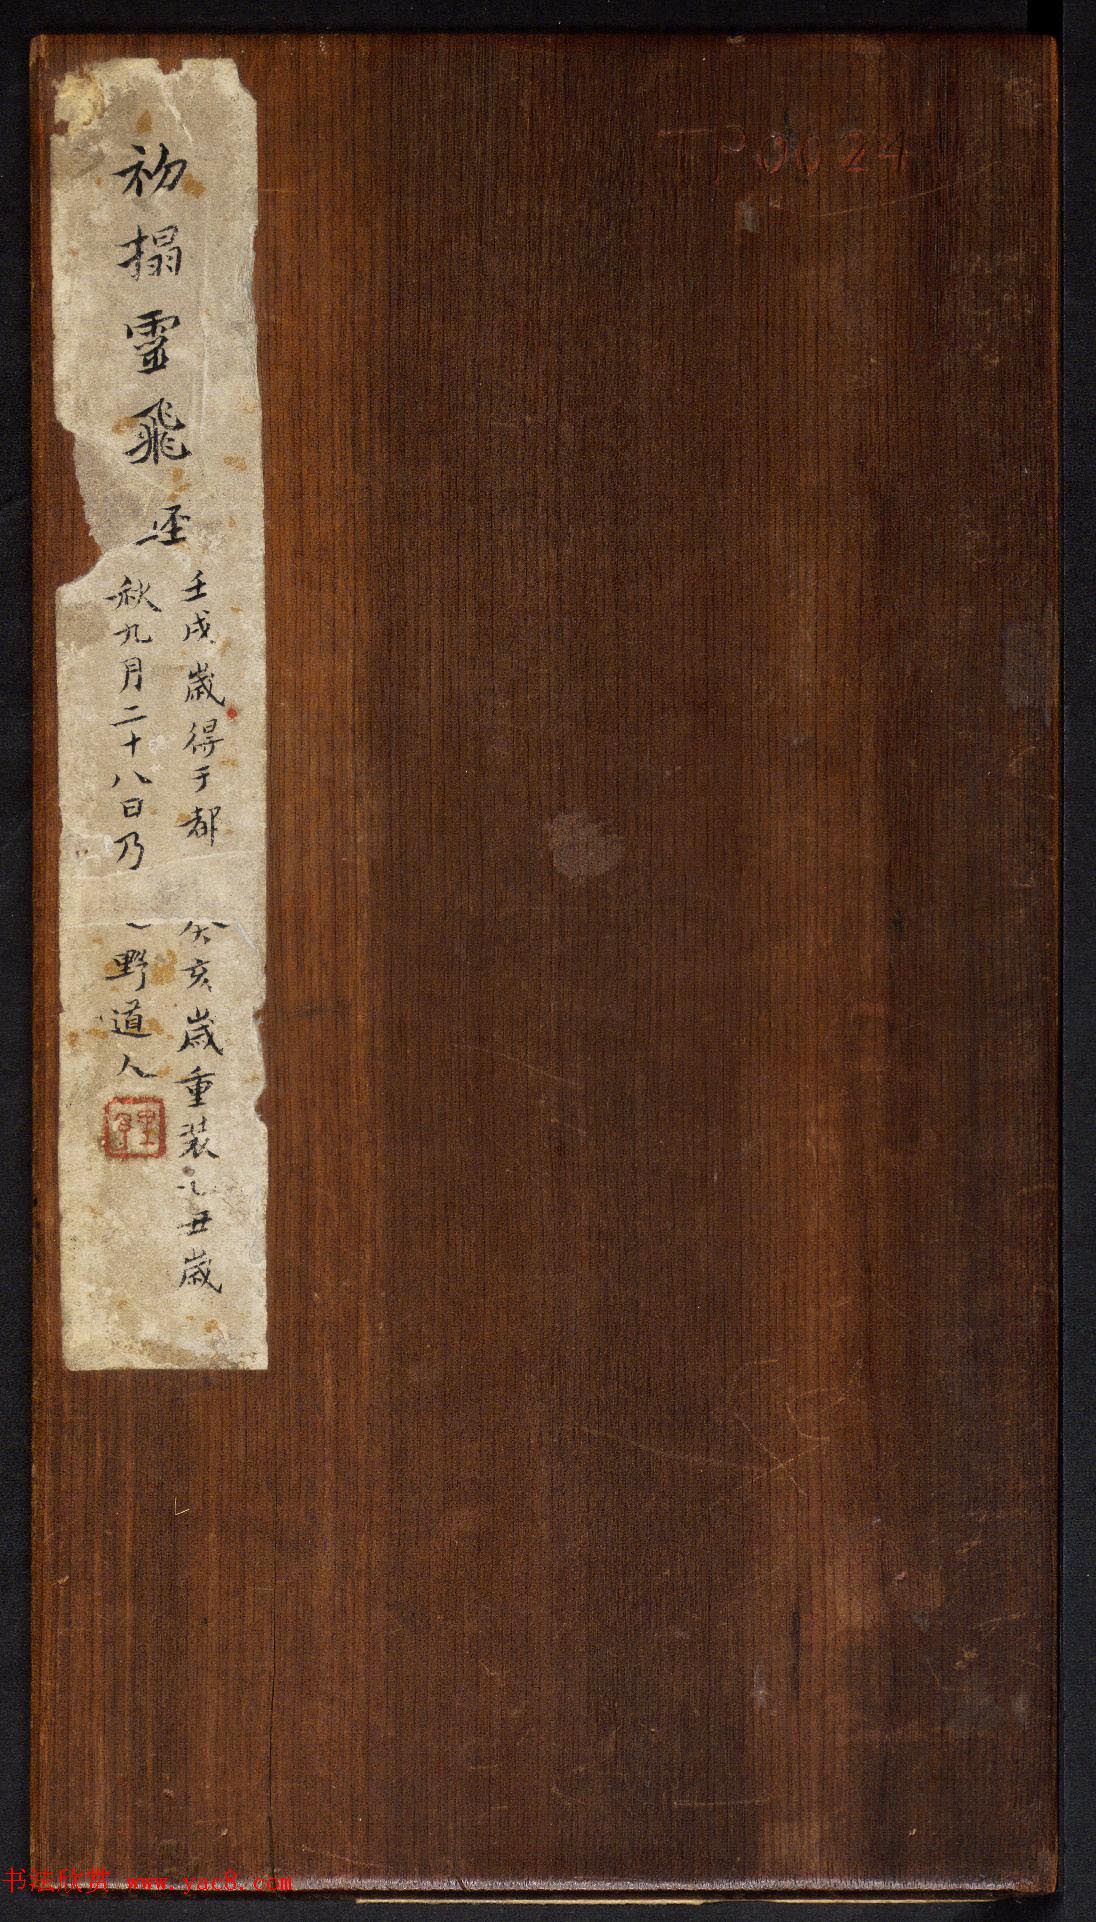 初搨靈飛經
壬戌歲得于都 癸亥歲重装乙丑歲
秋九月二十八日乃 野道人
TP0024
书法欣赏 www.yac8.com